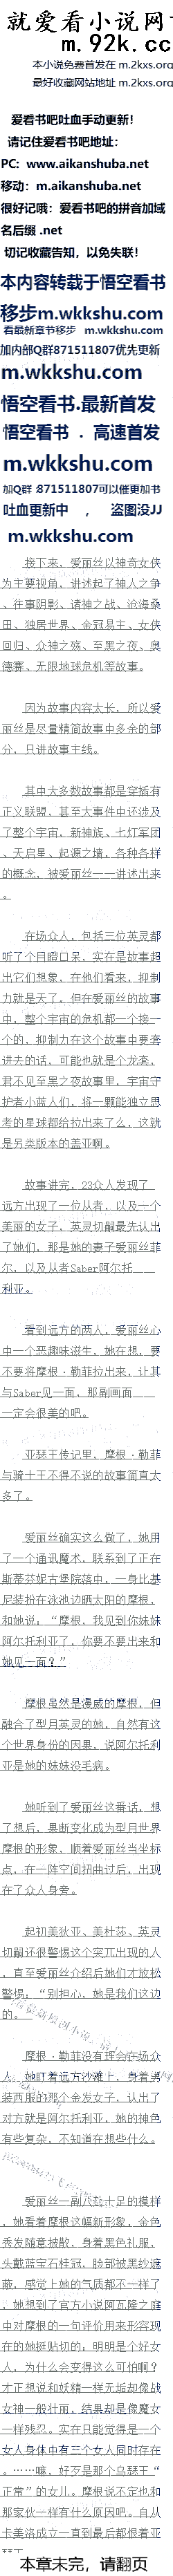 就爱看小说网
m.92k.cc
本小说免费首发在 m.2kxs.org
最好收藏网站地址 m.2kxs.org
爱看书吧吐血手动更新!
请记住爱看书吧地址:
PC: www.aikanshuba.net
移动: m.aikanshuba.net
很好记哦: 爱看书吧的拼音加域
名后缀 .net
切记收藏告知, 以免失联!
本内容转载于悟空看书
移步m.wkkshu.com
看最新章节移步 m.wkkshu.com
加内部Q群871511807优先更新
m.wkkshu.com
悟空看书.最新首发
悟空看书 . 高速首发
m.wkkshu.com
加Q群:871511807可以催更加书
吐血更新中 , 盗图没JJ
m.wkkshu.com
接下来,爱丽丝以神奇女侠
为主要视角,讲述起了神人之争
、往事阴影、诸神之战、沧海桑
田、独居世界、余冠易主、女侠
回归、众神之殇、至黑之夜、奥
德赛、无限地球危机等故事。
因为故事内容太长,所以爱
丽丝是尽量精简故事中多余的部
分,只讲故事主线。
其中大多数故事都是穿插有
正义联盟,甚至大事件中还涉及
了整个宇宙,新神族、七灯军团
、天启星、起源之墙,各种各样
的概念,被爱丽丝一一讲述出来
。
在场众人,包括三位英灵都
听了个目瞪口呆,实在是故事超
出它们想象,在他们看来,抑制
力就是天了,但在爱丽丝的故事
中,整个宇宙的危机都一个接一
个的,抑制力在这个故事中要套
进去的话,可能也就是个龙套,
君不见至黑之夜故事里,宇宙守
护者小蓝人们,将一颗能独立思
考的星球都给拉出来了么,这就
是另类版本的盖亚啊。
故事讲完,23众人发现了
远方出现了一位从者,以及一个
美丽的女子,英灵切嗣最先认出
了她们,那是她的妻子爱丽丝菲
尔,以及从者Saber阿尔托
利亚。
看到远方的两人,爱丽丝心
中一个恶趣味滋生,她在想,要
不要将摩根·勒菲拉出来,让其
与Saber见一面,那副画面
一定会很美的吧。
亚瑟王传记里,摩根·勒菲
与骑士王不得不说的故事简直太
多了。
爱丽丝确实这么做了,她用
了一个通讯魔术,联系到了正在
斯蒂芬妮古堡院落中,一身比基
尼装扮在泳池边晒太阳的摩根,
和她说,“摩根,我见到你妹妹
阿尔托利亚了,你要不要出来和
她见一面?”
摩根虽然是漫威的摩根,但
融合了型月英灵的她,自然有这
个世界身份的因果,说阿尔托利
亚是她的妹妹没毛病。
她听到了爱丽丝这番话,想
了想后,果断变化成为型月世界
摩根的形象,顺着爱丽丝当坐标
点,在一阵空间扭曲过后,出现
在了众人身旁。
起初美狄亚、美杜莎、英灵
切嗣还很警惕这个突兀出现的人
,直至爱丽丝介绍后她们才放松
警惕,“别担心,她是我们这边
的。”
摩根·勒菲没有理会在场众
人,她盯着远方沙滩上,身着男
装西服的那个金发女子,认出了
对方就是阿尔托利亚,她的神色
有些复杂,不知道在想些什么。
爱丽丝一副八卦十足的模样
,她看着摩根这幅新形象,金色
秀发随意披散,身着黑色礼服,
头戴蓝宝石桂冠,脸部被黑纱遮
蔽,感觉上她的气质都不一样了
,她想到了官方小说阿瓦隆之庭
中对摩根的一句评价用来形容现
在的她挺贴切的:明明是个好女
人,为什么会变得这么可怕啊?
才正想说和妖精一样无垢却像战
女神一般壮丽,结果却是像魔女
一样残忍。实在只能觉得是一个
女人身体中有三个女人同时存在
。……嘛,好歹是那个乌瑟王“
正常”的女儿。摩根说不定也和
那家伙一样有什么原因吧。自从
卡美洛成立一直到最后都恨着亚
本章未完,请翻页